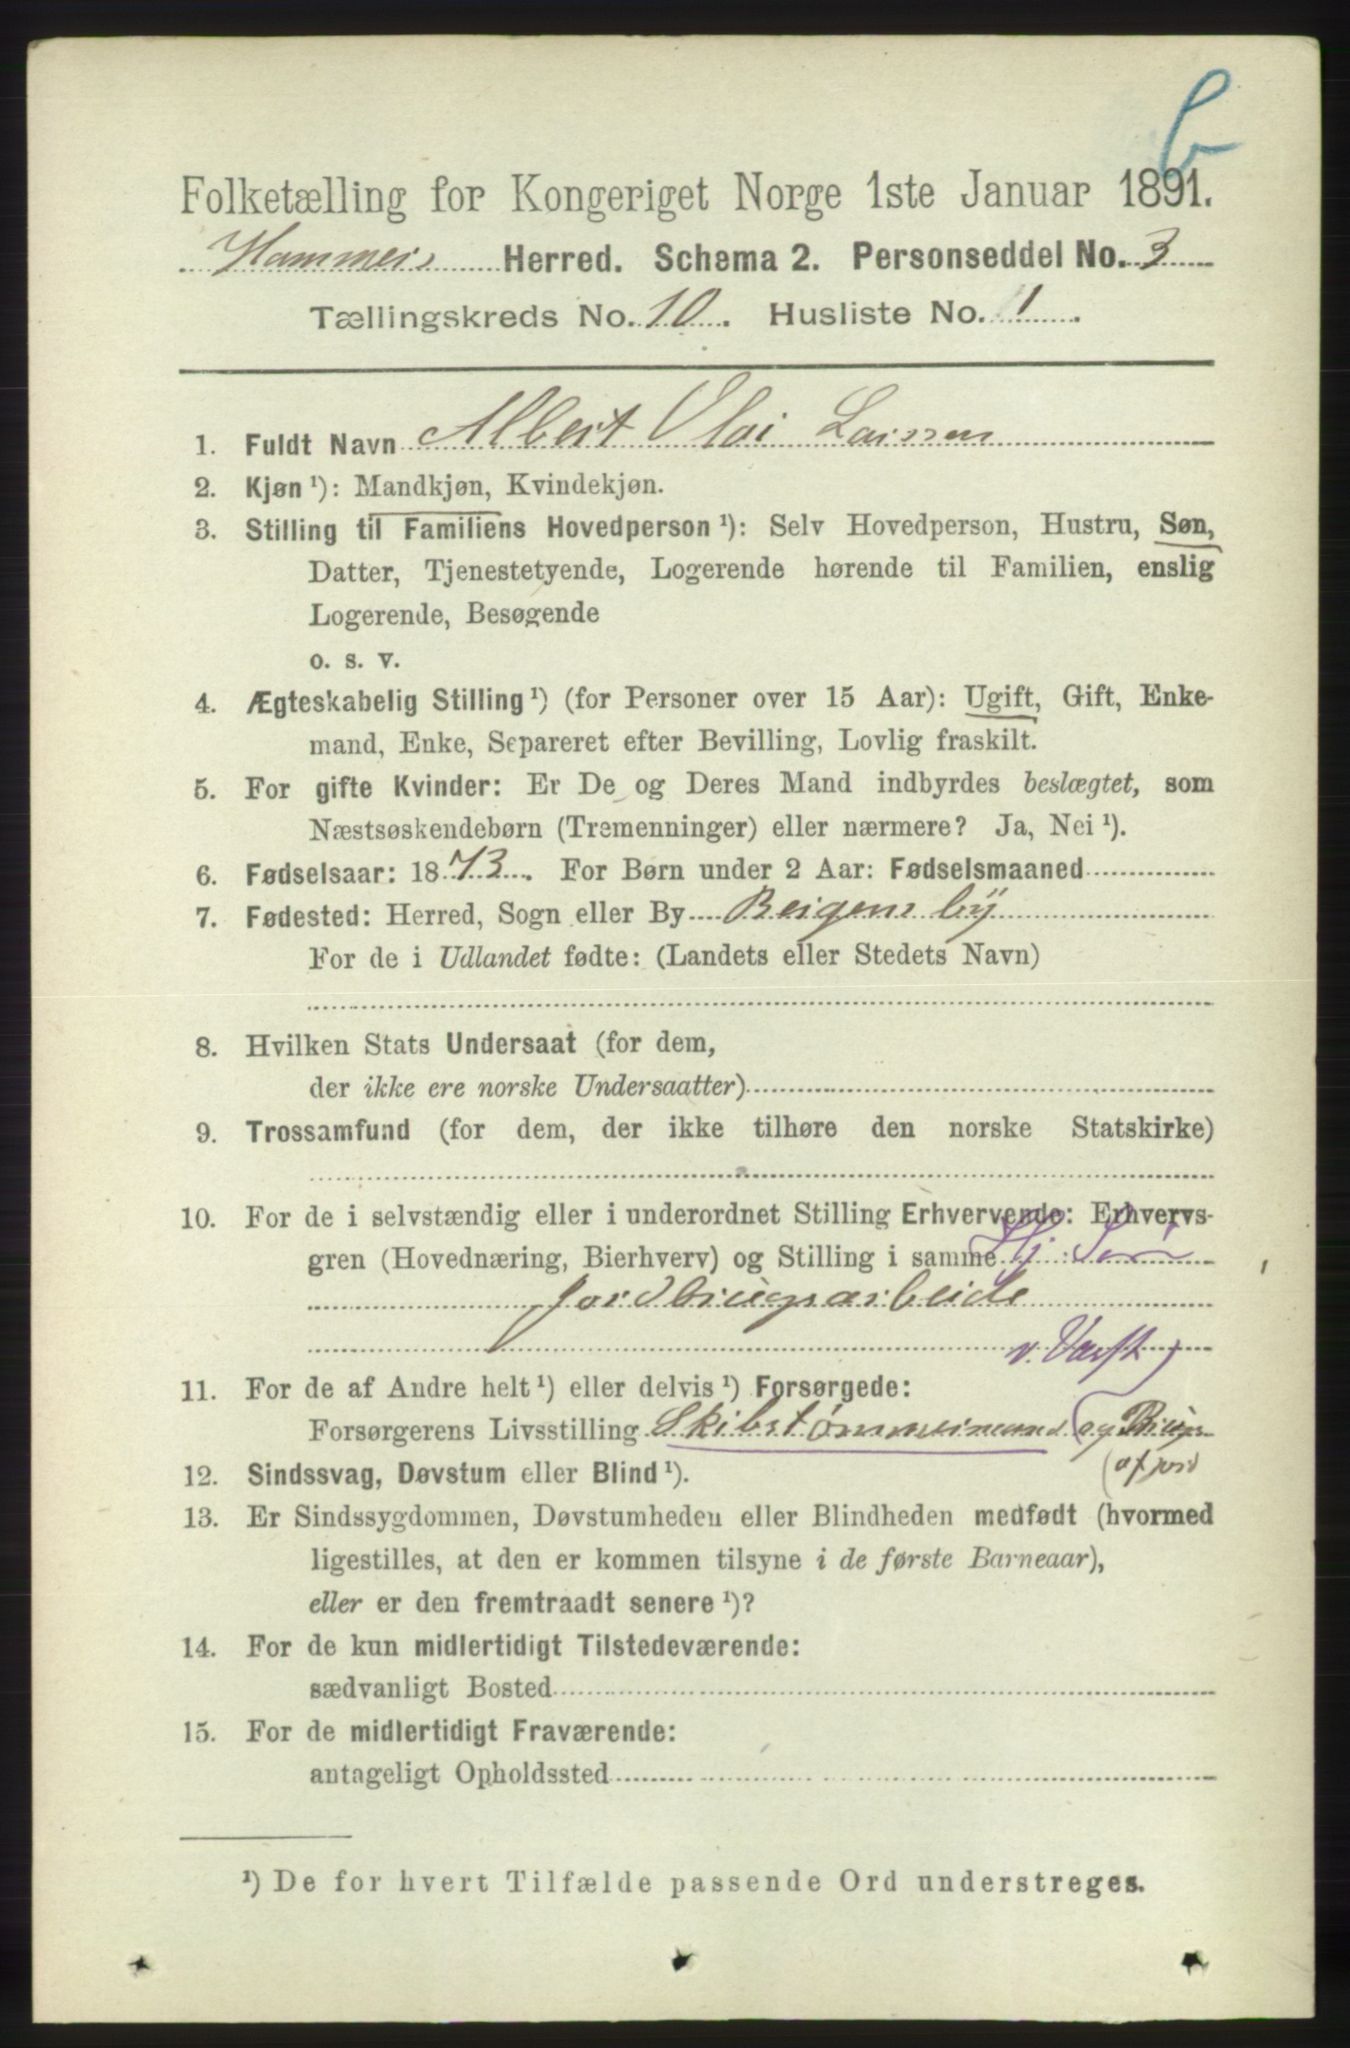 b
Folketælling for Kongeriget Norge 1ste Januar 1891.
Hammers Herred. Schema 2. Personseddel No. 3
Tællingskreds No. 10. Husliste No. 1.
1. Fuldt Navn Albert Olai Larssen
2. Kjøn ¹): Mandkjøn, Kvindekjøn.
3. Stilling til Familiens Hovedperson ¹): Selv Hovedperson, Hustru, Søn,
Datter, Tjenestetyende, Logerende hørende til Familien, enslig
Logerende, Besøgende
o. s. v.
4. Ægteskabelig Stilling ¹) (for Personer over 15 Aar): Ugift, Gift, Enke-
mand, Enke, Separeret efter Bevilling, Lovlig fraskilt.
5. For gifte Kvinder: Er De og Deres Mand indbyrdes beslægtet, som
Næstsøskendebørn (Tremenninger) eller nærmere? Ja, Nei ¹).
6. Fødselsaar: 1873. For Børn under 2 Aar: Fødselsmaaned
7. Fødested: Herred, Sogn eller By Bergens by
For de i Udlandet fødte: (Landets eller Stedets Navn)
8. Hvilken Stats Undersaat (for dem,
der ikke ere norske Undersaatter)
9. Trossamfund (for dem, der ikke tilhøre den norske Statskirke)
10. For de i selvstændig eller i underordnet Stilling Erhvervende: Erhvervs-
gren (Hovednæring, Bierhverv) og Stilling i samme Hj. Søn
jordbrugsarbeide
v. Værft
11. For de af Andre helt ¹) eller delvis ¹) Forsørgede:
Forsørgerens Livsstilling Skibstømmermand og Brug
(af jord
12. Sindssvag, Døvstum eller Blind ¹).
13. Er Sindssygdommen, Døvstumheden eller Blindheden medfødt (hvormed
ligestilles, at den er kommen tilsyne i de første Barneaar),
eller er den fremtraadt senere ¹)?
14. For de kun midlertidigt Tilstedeværende:
sædvanligt Bosted
15. For de midlertidigt Fraværende:
antageligt Opholdssted
¹) De for hvert Tilfælde passende Ord understreges.